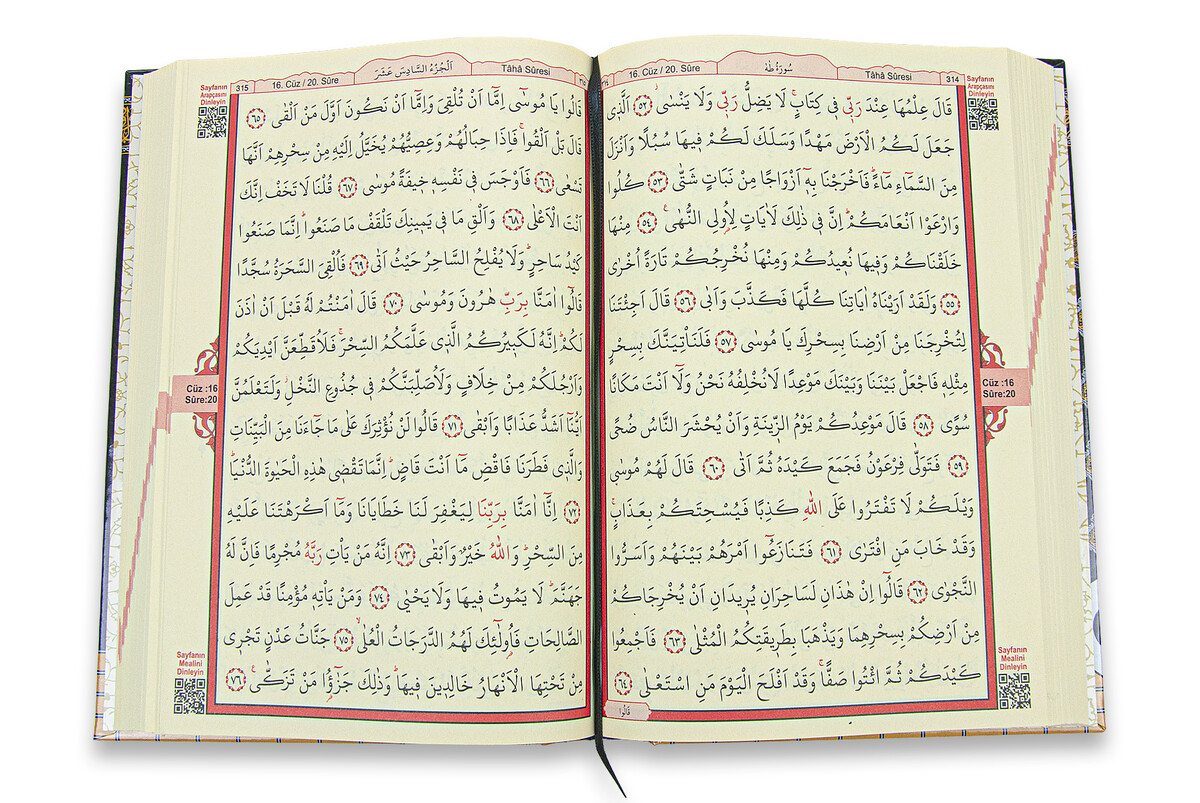 314
Tâhâ Sûresi
سُورَةُ طٰهٰ
16. Cüz / 20. Sûre
Sayfanın
Arapçasını
Dinleyin
قَالَ عِلْمُهَا عِنْدَ رَبّ۪ي ف۪ي كِتَابٍۚ لَا يَضِلُّ رَبّ۪ي وَلَا يَنْسٰىۘ ﴿٥٢﴾ اَلَّذ۪ي
جَعَلَ لَكُمُ الْاَرْضَ مَهْدًا وَسَلَكَ لَكُمْ ف۪يهَا سُبُلًا وَاَنْزَلَ
مِنَ السَّمَٓاءِ مَٓاءًۜ فَاَخْرَجْنَا بِه۪ٓ اَزْوَاجًا مِنْ نَبَاتٍ شَتّٰى ﴿٥٣﴾ كُلُوا
وَارْعَوْا اَنْعَامَكُمْۜ اِنَّ ف۪ي ذٰلِكَ لَاٰيَاتٍ لِاُو۬لِي النُّهٰى۟ ﴿٥٤﴾ مِنْهَا
خَلَقْنَاكُمْ وَف۪يهَا نُع۪يدُكُمْ وَمِنْهَا نُخْرِجُكُمْ تَارَةً اُخْرٰى
﴿٥٥﴾ وَلَقَدْ اَرَيْنَاهُ اٰيَاتِنَا كُلَّهَا فَكَذَّبَ وَاَبٰى ﴿٥٦﴾ قَالَ اَجِئْتَنَا
لِتُخْرِجَنَا مِنْ اَرْضِنَا بِسِحْرِكَ يَا مُوسٰى ﴿٥٧﴾ فَلَنَأْتِيَنَّكَ بِسِحْرٍ
مِثْلِه۪ فَاجْعَلْ بَيْنَنَا وَبَيْنَكَ مَوْعِدًا لَا نُخْلِفُهُ نَحْنُ وَلَٓا اَنْتَ مَكَانًا
سُوًى ﴿٥٨﴾ قَالَ مَوْعِدُكُمْ يَوْمُ الزّ۪ينَةِ وَاَنْ يُحْشَرَ النَّاسُ ضُحًى
﴿٥٩﴾ فَتَوَلّٰى فِرْعَوْنُ فَجَمَعَ كَيْدَهُ ثُمَّ اَتٰى ﴿٦٠﴾ قَالَ لَهُمْ مُوسٰى
وَيْلَكُمْ لَا تَفْتَرُوا عَلَى اللّٰهِ كَذِبًا فَيُسْحِتَكُمْ بِعَذَابٍۚ
وَقَدْ خَابَ مَنِ افْتَرٰى ﴿٦١﴾ فَتَنَازَعُٓوا اَمْرَهُمْ بَيْنَهُمْ وَاَسَرُّوا
النَّجْوٰى ﴿٦٢﴾ قَالُٓوا اِنْ هٰذَانِ لَسَاحِرَانِ يُر۪يدَانِ اَنْ يُخْرِجَاكُمْ
مِنْ اَرْضِكُمْ بِسِحْرِهِمَا وَيَذْهَبَا بِطَر۪يقَتِكُمُ الْمُثْلٰى ﴿٦٣﴾ فَاَجْمِعُوا
كَيْدَكُمْ ثُمَّ ائْتُوا صَفًّاۚ وَقَدْ اَفْلَحَ الْيَوْمَ مَنِ اسْتَعْلٰى ﴿٦٤﴾
قَالُوا
Cüz :16
Sûre:20
Sayfanın
Mealini
Dinleyin
Tâhâ Sûresi
اَلْجُزْءُ السَّادِسَ عَشَرَ
16. Cüz / 20. Sûre
315
Sayfanın
Arapçasını
Dinleyin
قَالُوا يَا مُوسٰٓى اِمَّٓا اَنْ تُلْقِيَ وَاِمَّٓا اَنْ نَكُونَ اَوَّلَ مَنْ اَلْقٰى ﴿٦٥﴾
قَالَ بَلْ اَلْقُواۚ فَاِذَا حِبَالُهُمْ وَعِصِيُّهُمْ يُخَيَّلُ اِلَيْهِ مِنْ سِحْرِهِمْ اَنَّهَا
تَسْعٰى ﴿٦٦﴾ فَاَوْجَسَ ف۪ي نَفْسِه۪ خ۪يفَةً مُوسٰى ﴿٦٧﴾ قُلْنَا لَا تَخَفْ اِنَّكَ
اَنْتَ الْاَعْلٰى ﴿٦٨﴾ وَاَلْقِ مَا ف۪ي يَم۪ينِكَ تَلْقَفْ مَا صَنَعُواۜ اِنَّمَا صَنَعُوا
كَيْدُ سَاحِرٍۜ وَلَا يُفْلِحُ السَّاحِرُ حَيْثُ اَتٰى ﴿٦٩﴾ فَاُلْقِيَ السَّحَرَةُ سُجَّدًا
قَالُٓوا اٰمَنَّا بِرَبِّ هٰرُونَ وَمُوسٰى ﴿٧٠﴾ قَالَ اٰمَنْتُمْ لَهُ قَبْلَ اَنْ اٰذَنَ
لَكُمْۜ اِنَّهُ لَكَب۪يرُكُمُ الَّذ۪ي عَلَّمَكُمُ السِّحْرَۚ فَلَاُقَطِّعَنَّ اَيْدِيَكُمْ
وَاَرْجُلَكُمْ مِنْ خِلَافٍ وَلَاُصَلِّبَنَّكُمْ ف۪ي جُذُوعِ النَّخْلِۘ وَلَتَعْلَمُنَّ
اَيُّنَٓا اَشَدُّ عَذَابًا وَاَبْقٰى ﴿٧١﴾ قَالُوا لَنْ نُؤْثِرَكَ عَلٰى مَا جَٓاءَنَا مِنَ الْبَيِّنَاتِ
وَالَّذ۪ي فَطَرَنَا فَاقْضِ مَٓا اَنْتَ قَاضٍۜ اِنَّمَا تَقْض۪ي هٰذِهِ الْحَيٰوةَ الدُّنْيَاۜ
﴿٧٢﴾ اِنَّٓا اٰمَنَّا بِرَبِّنَا لِيَغْفِرَ لَنَا خَطَايَانَا وَمَٓا اَكْرَهْتَنَا عَلَيْهِ
مِنَ السِّحْرِۜ وَاللّٰهُ خَيْرٌ وَاَبْقٰى ﴿٧٣﴾ اِنَّهُ مَنْ يَأْتِ رَبَّهُ مُجْرِمًا فَاِنَّ لَهُ
جَهَنَّمَۜ لَا يَمُوتُ ف۪يهَا وَلَا يَحْيٰى ﴿٧٤﴾ وَمَنْ يَأْتِه۪ مُؤْمِنًا قَدْ عَمِلَ
الصَّالِحَاتِ فَاُو۬لٰٓئِكَ لَهُمُ الدَّرَجَاتُ الْعُلٰىۙ ﴿٧٥﴾ جَنَّاتُ عَدْنٍ تَجْر۪ي
مِنْ تَحْتِهَا الْاَنْهَارُ خَالِد۪ينَ ف۪يهَاۜ وَذٰلِكَ جَزٰٓؤُ۬ا مَنْ تَزَكّٰى۟ ﴿٧٦﴾
Cüz :16
Sûre:20
Sayfanın
Mealini
Dinleyin